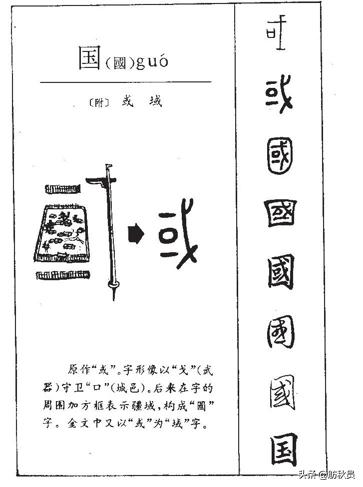 国(國)guó
〔附〕 或 域
或
原作“或”。字形像以“戈”(武
器)守卫“口”(城邑)。后来在字的
周围加方框表示疆域,构成“國”
字。 金文中又以“或”为“域”字。
或
或
國
國
國
國
國
国
头条 @舫秋员